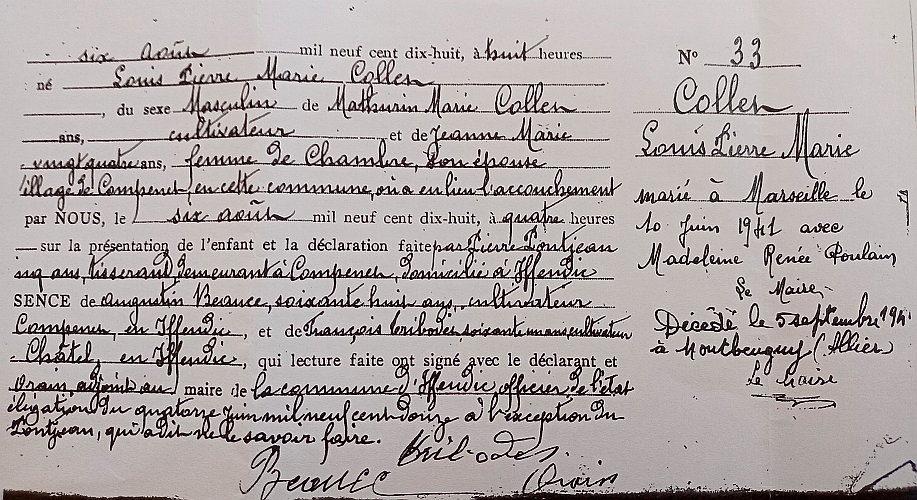 six août mil neuf cent dix-huit, à huit heures
né Louis Pierre Marie Collen
, du sexe Masculin de Mathurin Marie Collen
ans, cultivateur et de Jeanne Marie
vingt quatre ans, femme de Chambre, son épouse
illage de Compenet, en cette commune, où a eu lieu l'accouchement
par NOUS, le six août mil neuf cent dix-huit, à quatre heures
sur la présentation de l'enfant et la déclaration faite par Pierre Pontjean
inq ans, tisserand, demeurant à Compenen, domicilié à Iffendic
SENCE de Augustin Beauce, soixante huit ans, cultivateur
Compenen, en Iffendic, et de François soixante un ans, cultivateur
Châtel, en Iffendic, qui lecture faite ont signé avec le déclarant et
Orain, adjoint au maire de la commune d'Iffendic, officier de l'état
éligation du quatorze juin mil neuf cent douze à l'exception du
Pontjean, qui a dit ne le savoir faire.
Beauce Orain
N° 33
Collen
Louis Pierre Marie
marié à Marseille le
10 Juin 1941 avec
Madeleine Renée Poulain
Le Maire
Décédé le 5 septembre 194
à Montbeugny (Allier)
Le Maire